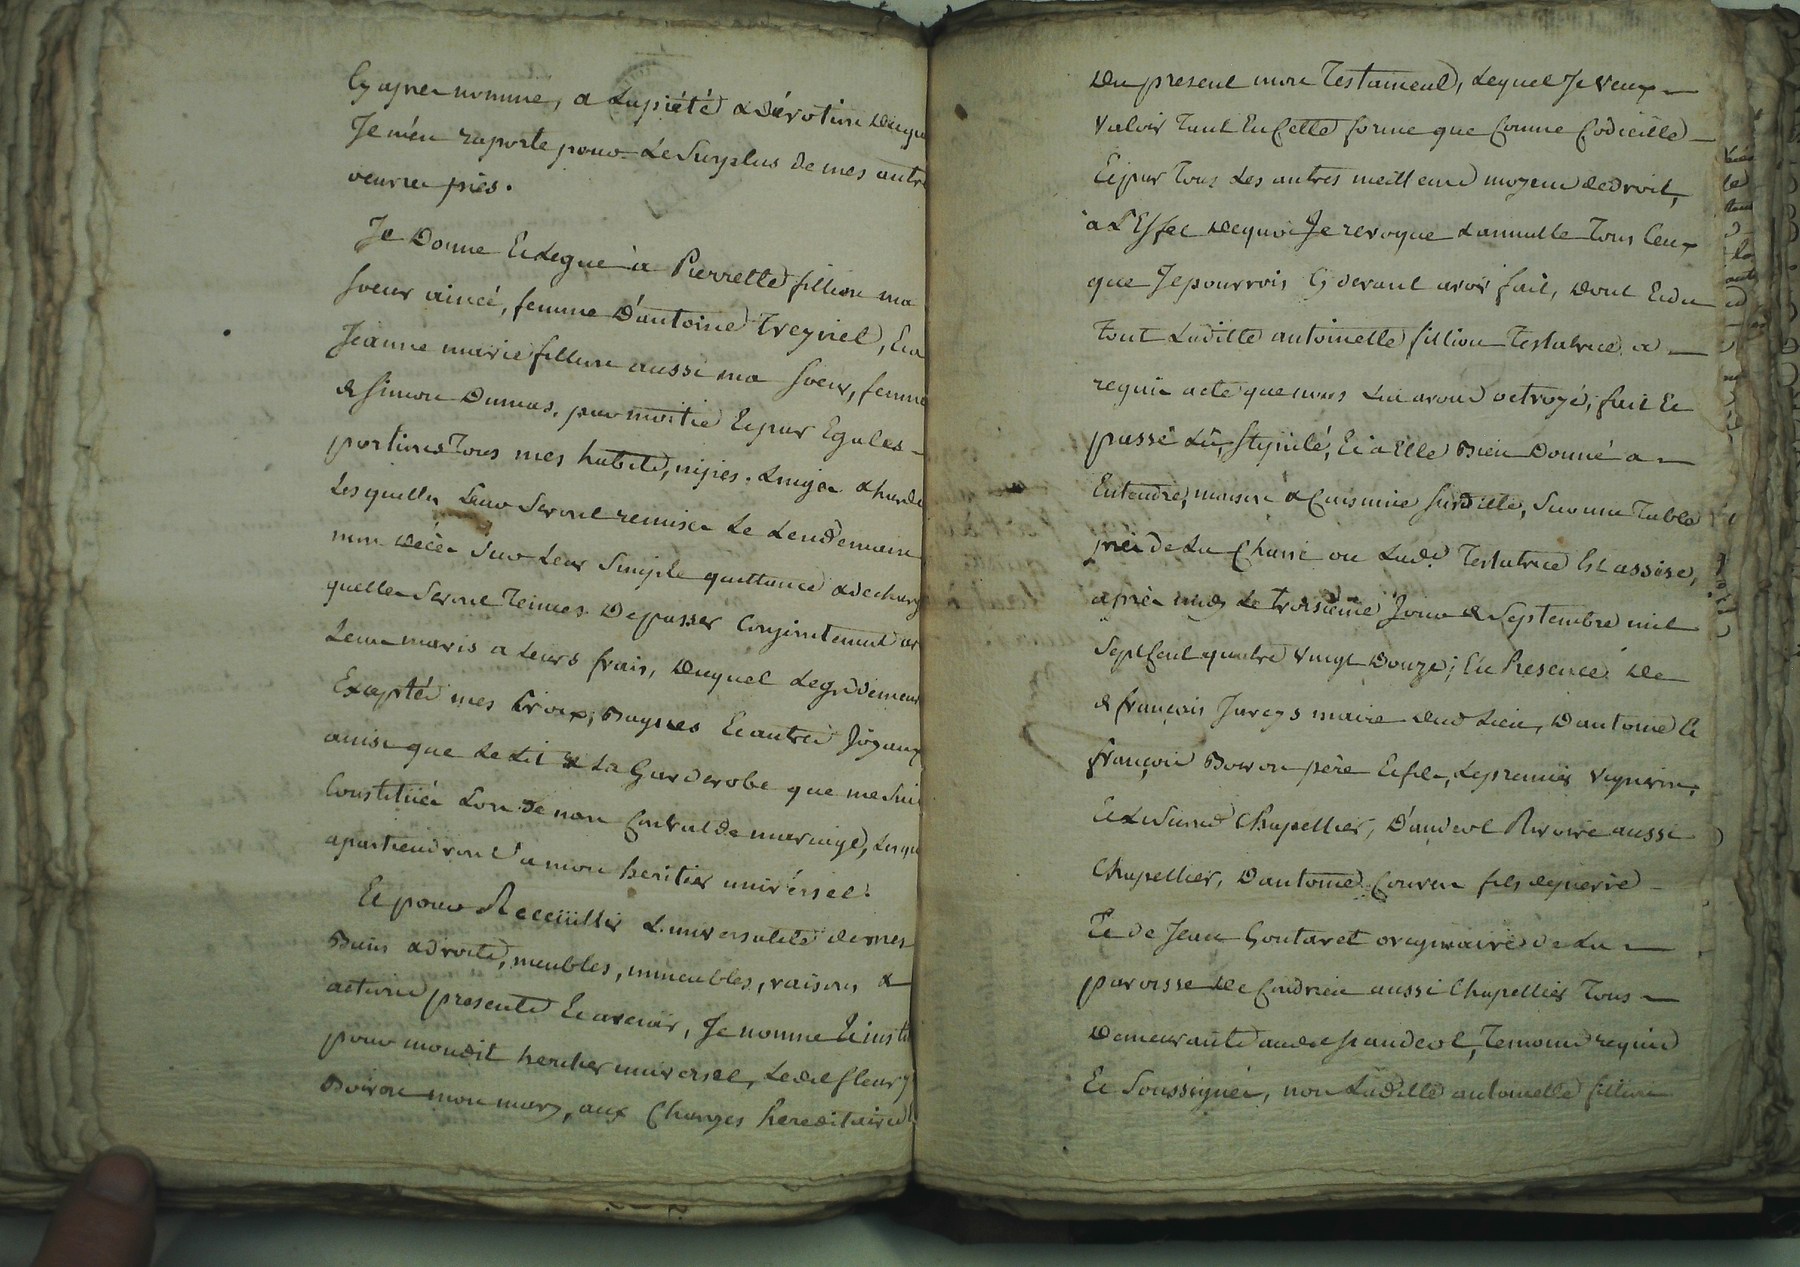 Cy apres nommé, a la piété & dévotion duque
Je m'en raporte pour le Surplus de mes autre
oeuvres pies.
Je Donne Et Legue à Pierrette fillion ma
soeur ainée, femme D'antoine Treynel, Et a
Jeanne marie fillion aussi ma soeur, femme
de Simon Dumas, par moitié Et par Egales
portions Tous mes habits, nipes, Linges & harde
Lesquelles Leur Seront remises Le Lendemain
mon décès Sur Leur Simple quittance & decharg
quelles Seront Tenues De passer Conjointement av
Leurs maris a Leurs frais, Duquel Legs demeur
Exeptés mes Croix, Bagues Et autres Joyaux
ainsi que Le Lit & La Garderobe que me suis
Constituée Lors de mon Contrat de mariage, Lesqu
apartiendront a mon heritier universel.
Et pour Receuillir L'universalité de mes
Biens & droits, meubles, immeubles, raisons &
actions presents Et avenir, Je nomme Et instit
pour mondit heritier universel, Ledit fleury
Boiron mon mary, aux Charges hereditaires
Du present mon Testament, Lequel Je veux
valoir Tant En Cette forme que Comme Codicille
Et par Tous Les autres meilleurs moyens de droit,
à L'Effet de quoi Je revoque & annulle Tous Ceux
que Je pourrois Cy devant avoir fait, Dont Et du
Tout Laditte antoinette fillion Testatrice a
requis acte que nous Lui avons octroyé, fait Et
passé Lû, Stipulé, Et a Elle Bien Donné a
Entendre, maison & Cuisine susditte, Sur une Table
près de La Chaise ou Lade. Testatrice Est assise,
après midy Le troisieme Jour de Septembre mil
Sept Cent quatre vingt Douze; En Presence De
de françois Jurcys maire dud Lieu, D'antoine Et
françois Boiron père Et fils, Le premier vigneron,
Et Le Second Chapellier, D'andeol Rivoire aussi
Chapellier, D'antoine fils de pierre
Et de Jean Goutaret originaire de La
paroisse de Condrieu aussi Chapellier Tous
Demeurants aud St andeol, Temoins requis
Et Soussignés, non Laditte antoinette fillion